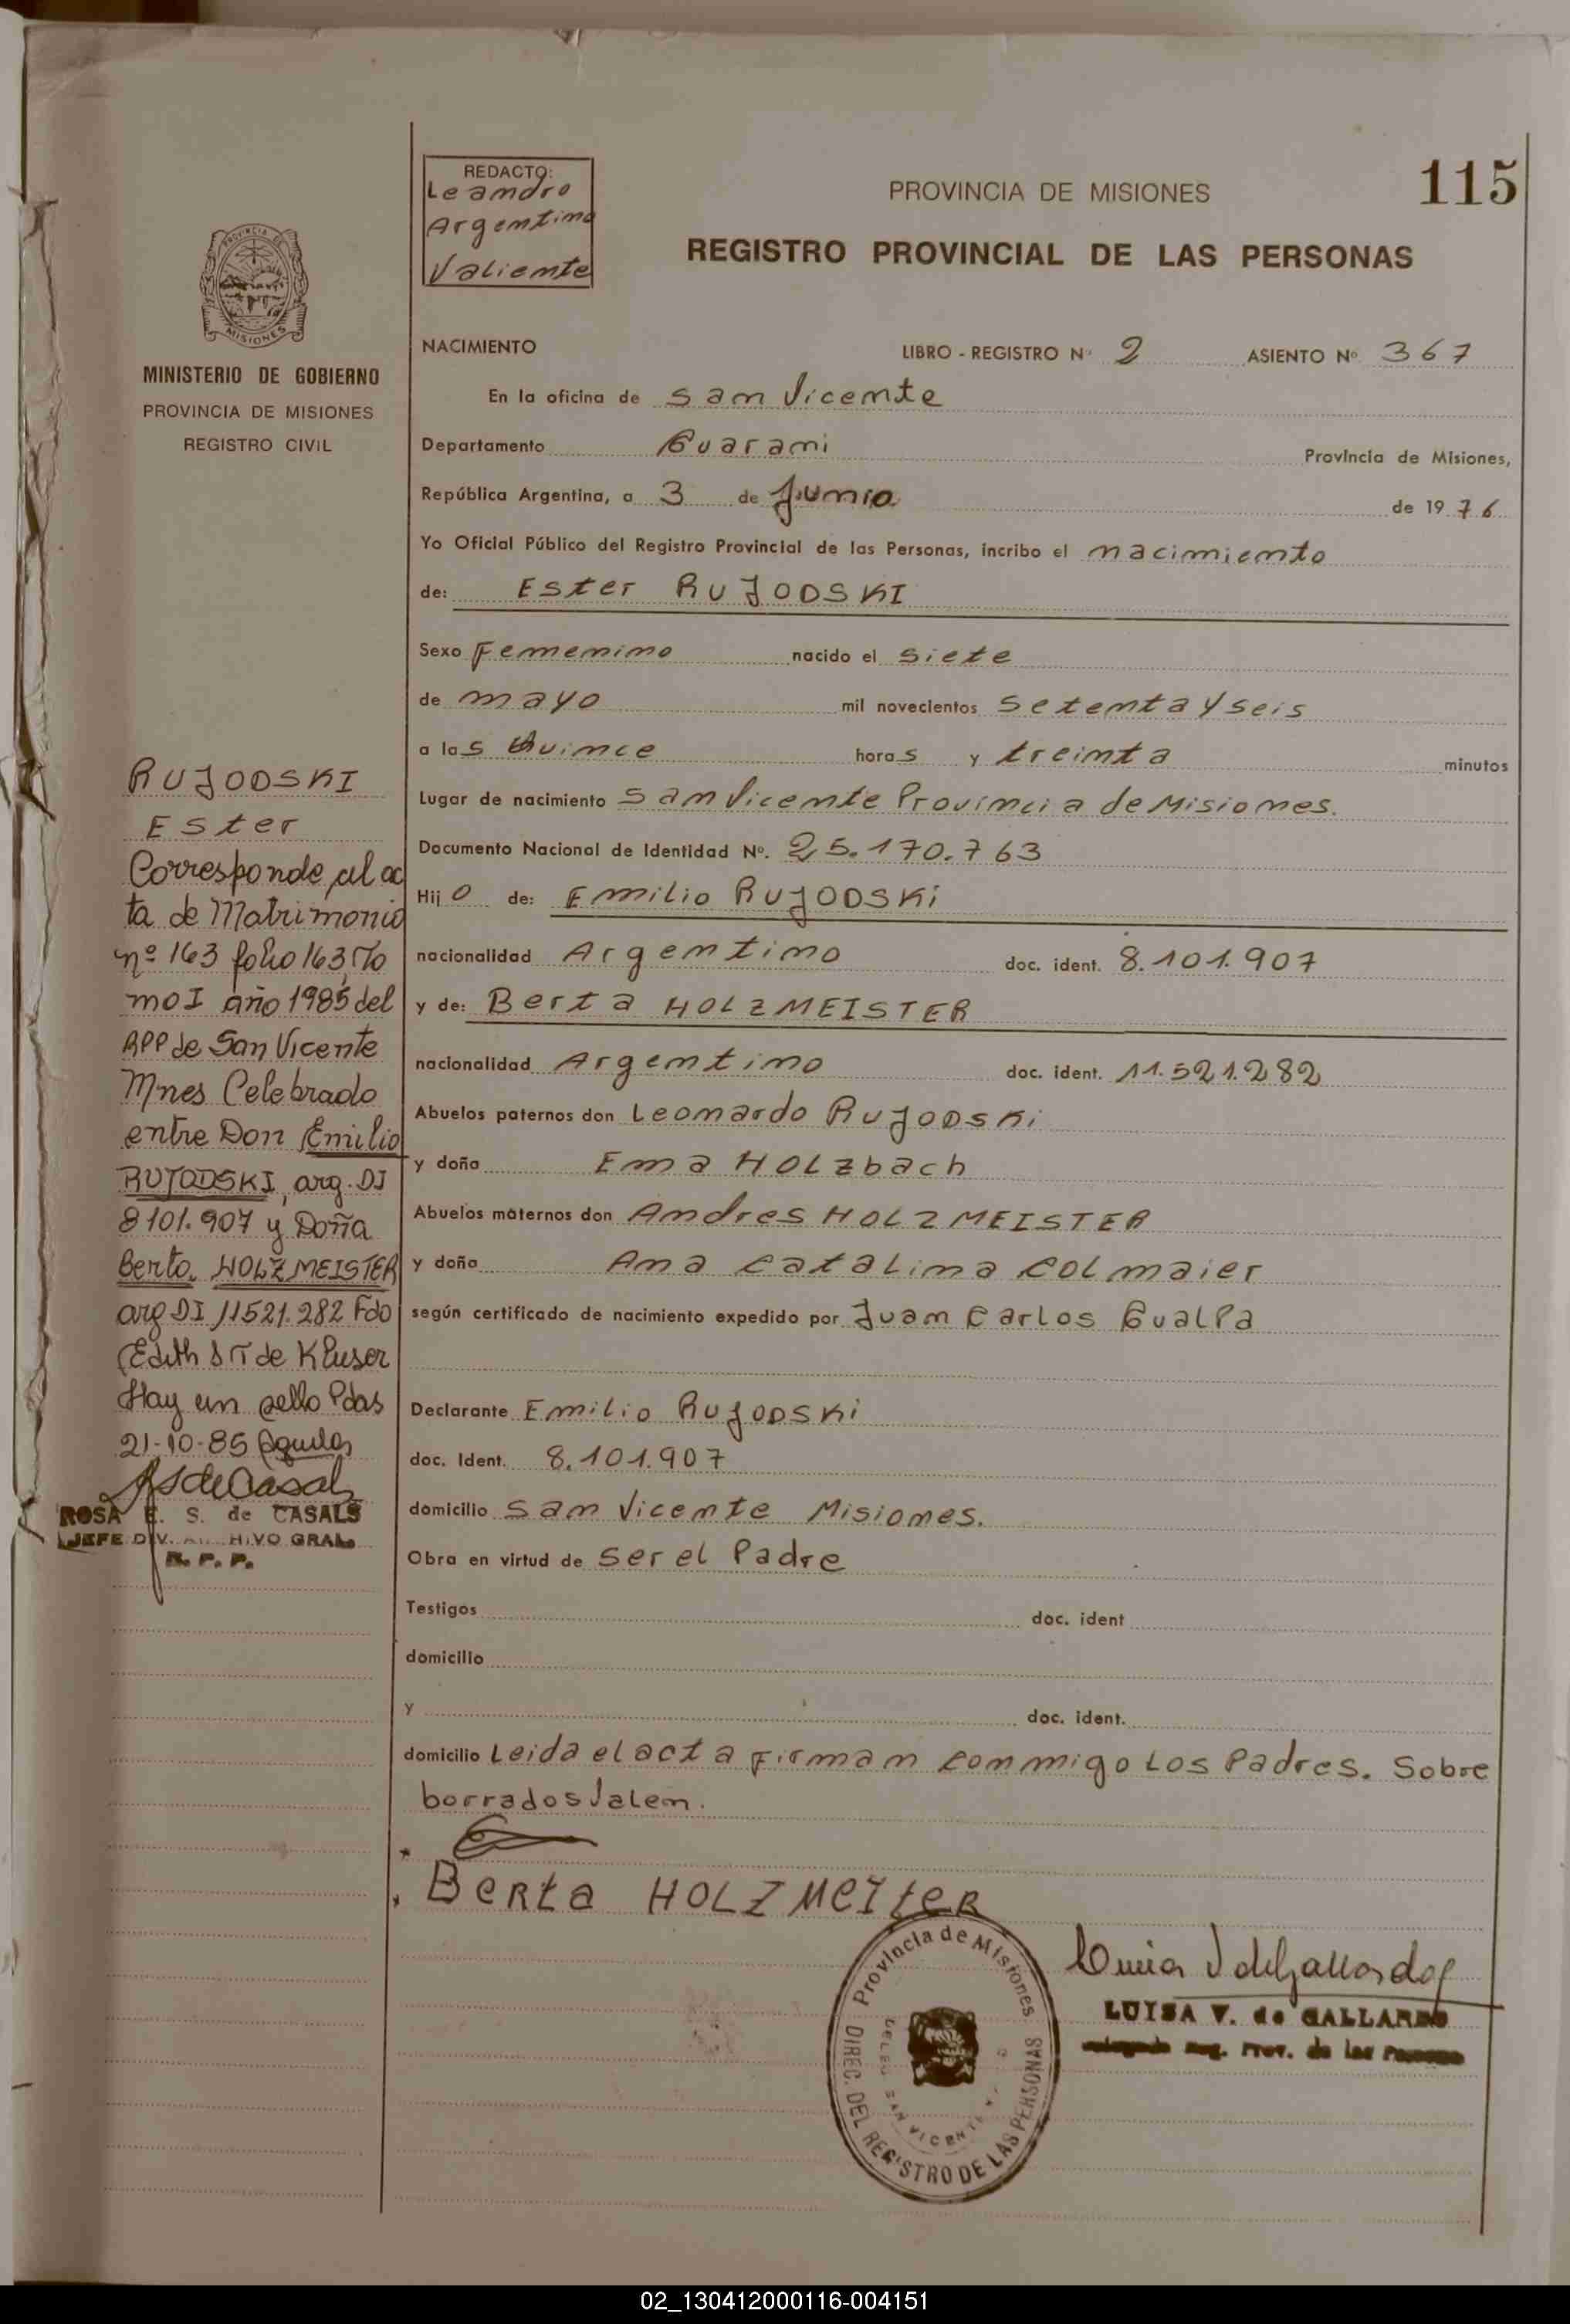 115
REDACTO:
Leandro
Argentino
Valiente
PROVINCIA DE MISIONES
REGISTRO PROVINCIAL DE LAS PERSONAS
PROVINCIA DE
MISIONES
MINISTERIO DE GOBIERNO
PROVINCIA DE MISIONES
REGISTRO CIVIL
NACIMIENTO LIBRO - REGISTRO Nº 2 ASIENTO Nº 367
En la oficina de San Vicente
Departamento Guarani Provincia de Misiones,
República Argentina, a 3 de Junio de 1976
Yo Oficial Público del Registro Provincial de las Personas, incribo el nacimiento
de: Ester RUJODSKI
Sexo Femenino nacido el siete
de mayo mil novecientos setenta y seis
a las quince horas y treinta minutos
Lugar de nacimiento San Vicente Provincia de Misiones.
Documento Nacional de Identidad Nº. 25.170.763
Hijo de: Emilio RUJODSKi
nacionalidad Argentino doc. ident. 8.101.907
y de: Berta HOLZMEISTER
nacionalidad Argentino doc. ident. 11.521.282
Abuelos paternos don Leonardo RUJODSKi
y doña Ema HOLZbach
Abuelos maternos don Andres HOLZMEISTER
y doña Ana Catalina Colmaier
según certificado de nacimiento expedido por Juan Carlos Gualpa
Declarante Emilio RUJODSKi
doc. Ident. 8.101.907
domicilio San Vicente Misiones.
Obra en virtud de ser el Padre
Testigos doc. ident
domicilio
y doc. ident.
domicilio Leida el acta Firman conmigo Los Padres. Sobre
borrados Valen.
Berta HOLZMEIteR
RUJODSKI
Ester
Corresponde al ac
ta de Matrimonio
nº 163 folio 163, To
mo I año 1985 del
RPP de San Vicente
Mnes Celebrado
entre Don Emilio
RUJODSKI, arg. DI
8101.907 y Doña
Berta HOLZMEISTER
arg DI 11521.282 Fdo
Edith S T de Kluser
Hay un sello Pdas
21-10-85
ROSA E. S. de CASALS
JEFE DIV. ARCHIVO GRAL.
R. P. P.
Provincia de Misiones
DIREC. DEL REGISTRO DE LAS PERSONAS
DELEG SAN VICENTE
Luisa V de Gallardo
LUISA V. de GALLARDO
Reg. Prov. de las Personas
02_130412000116-004151